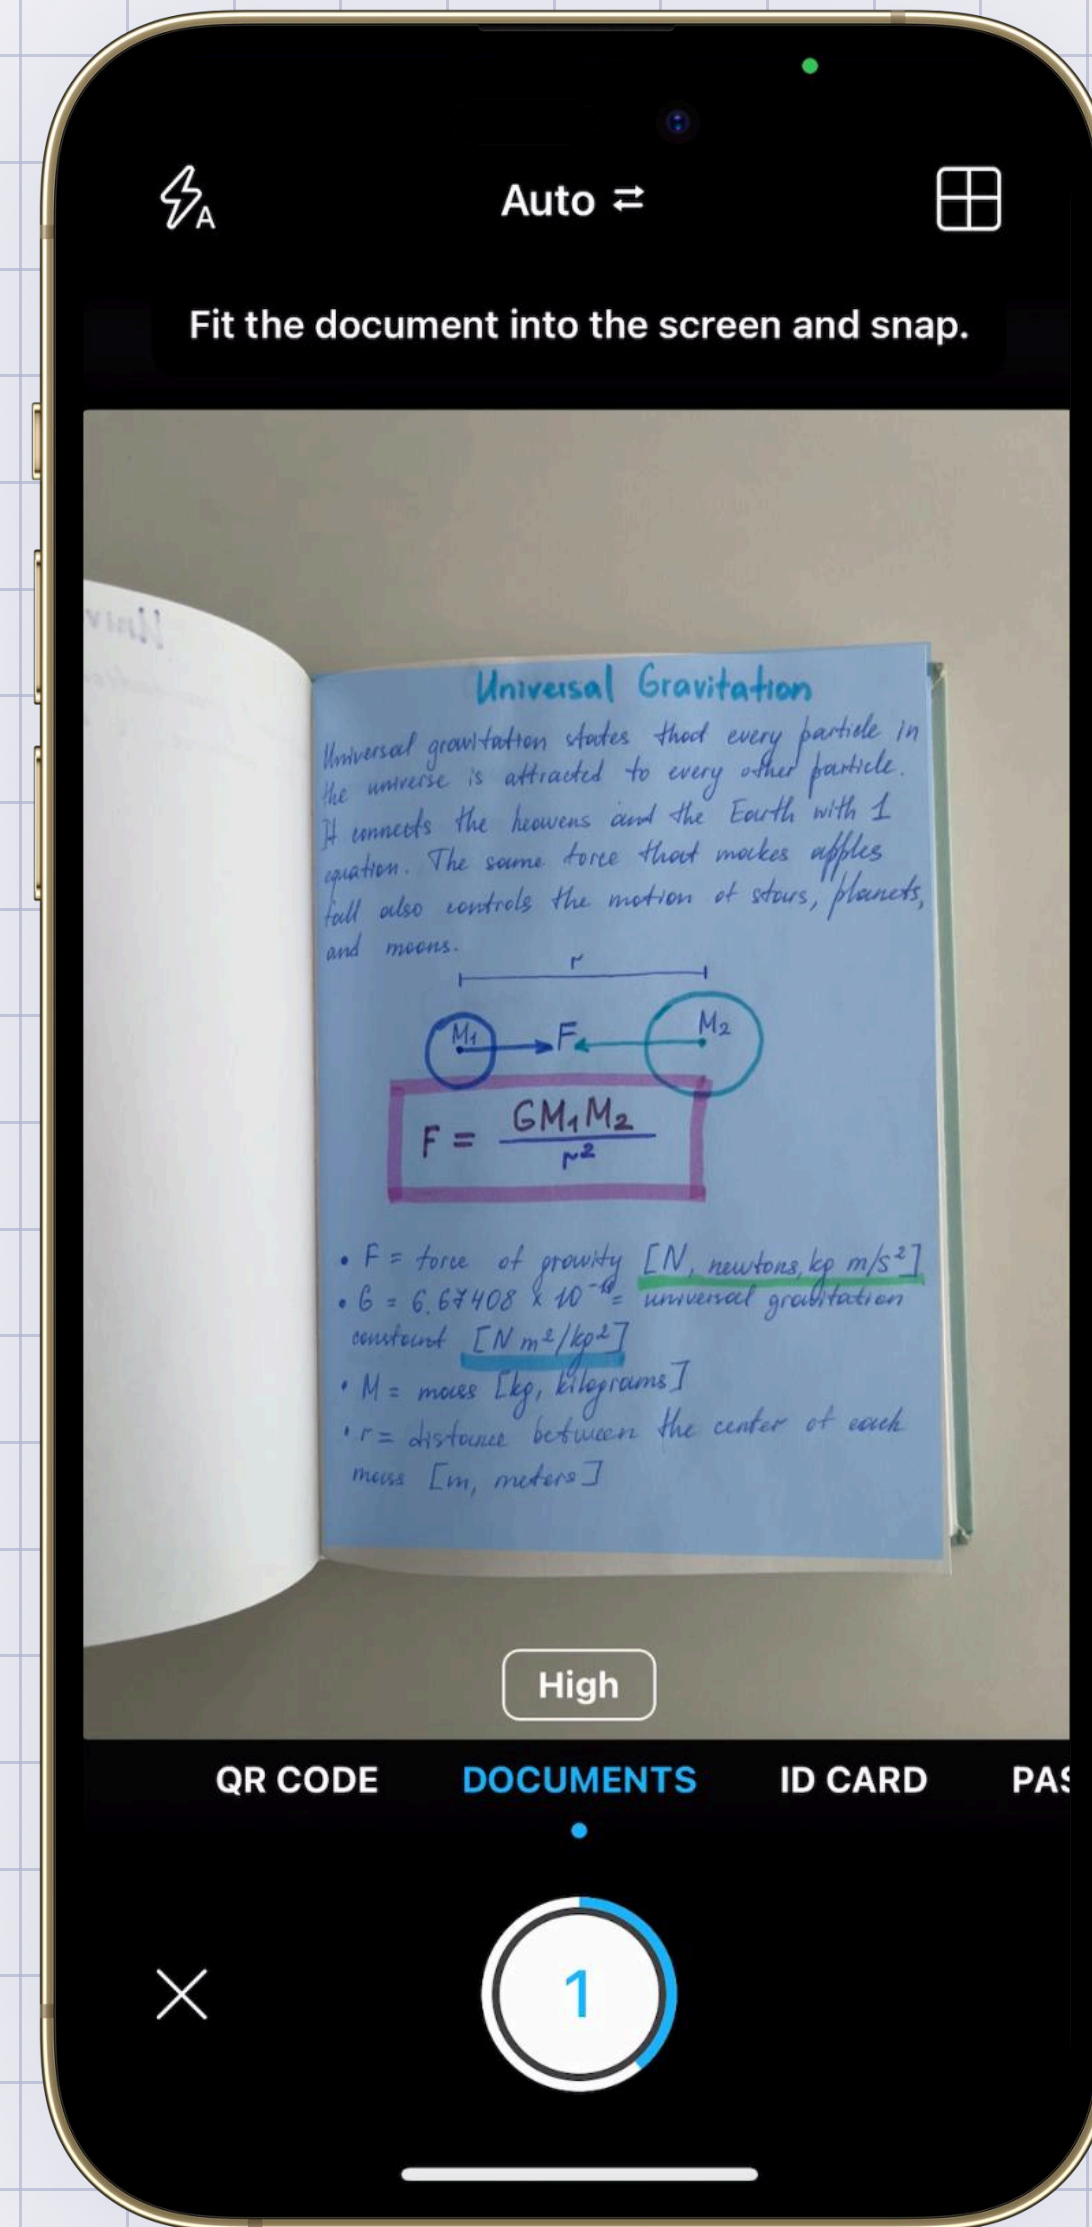 A
Auto
Fit the document into the screen and snap.
Univ
Universal Gravitation
Universal gravitation states that every particle in
the universe is attracted to every other particle.
It connects the heavens and the Earth with 1
equation. The same force that makes apples
fall also controls the motion of stars, planets,
and moons.
r
M₁ F M₂
F = GM₁M₂ / r²
• F = force of gravity [N, newtons, kg m/s²]
• G = 6,67408 x 10 = universal gravitation
constant [N m²/kg²]
• M = mass [kg, kilograms]
• r = distance between the center of each
mass [m, meters]
High
QR CODE DOCUMENTS ID CARD PAS
1